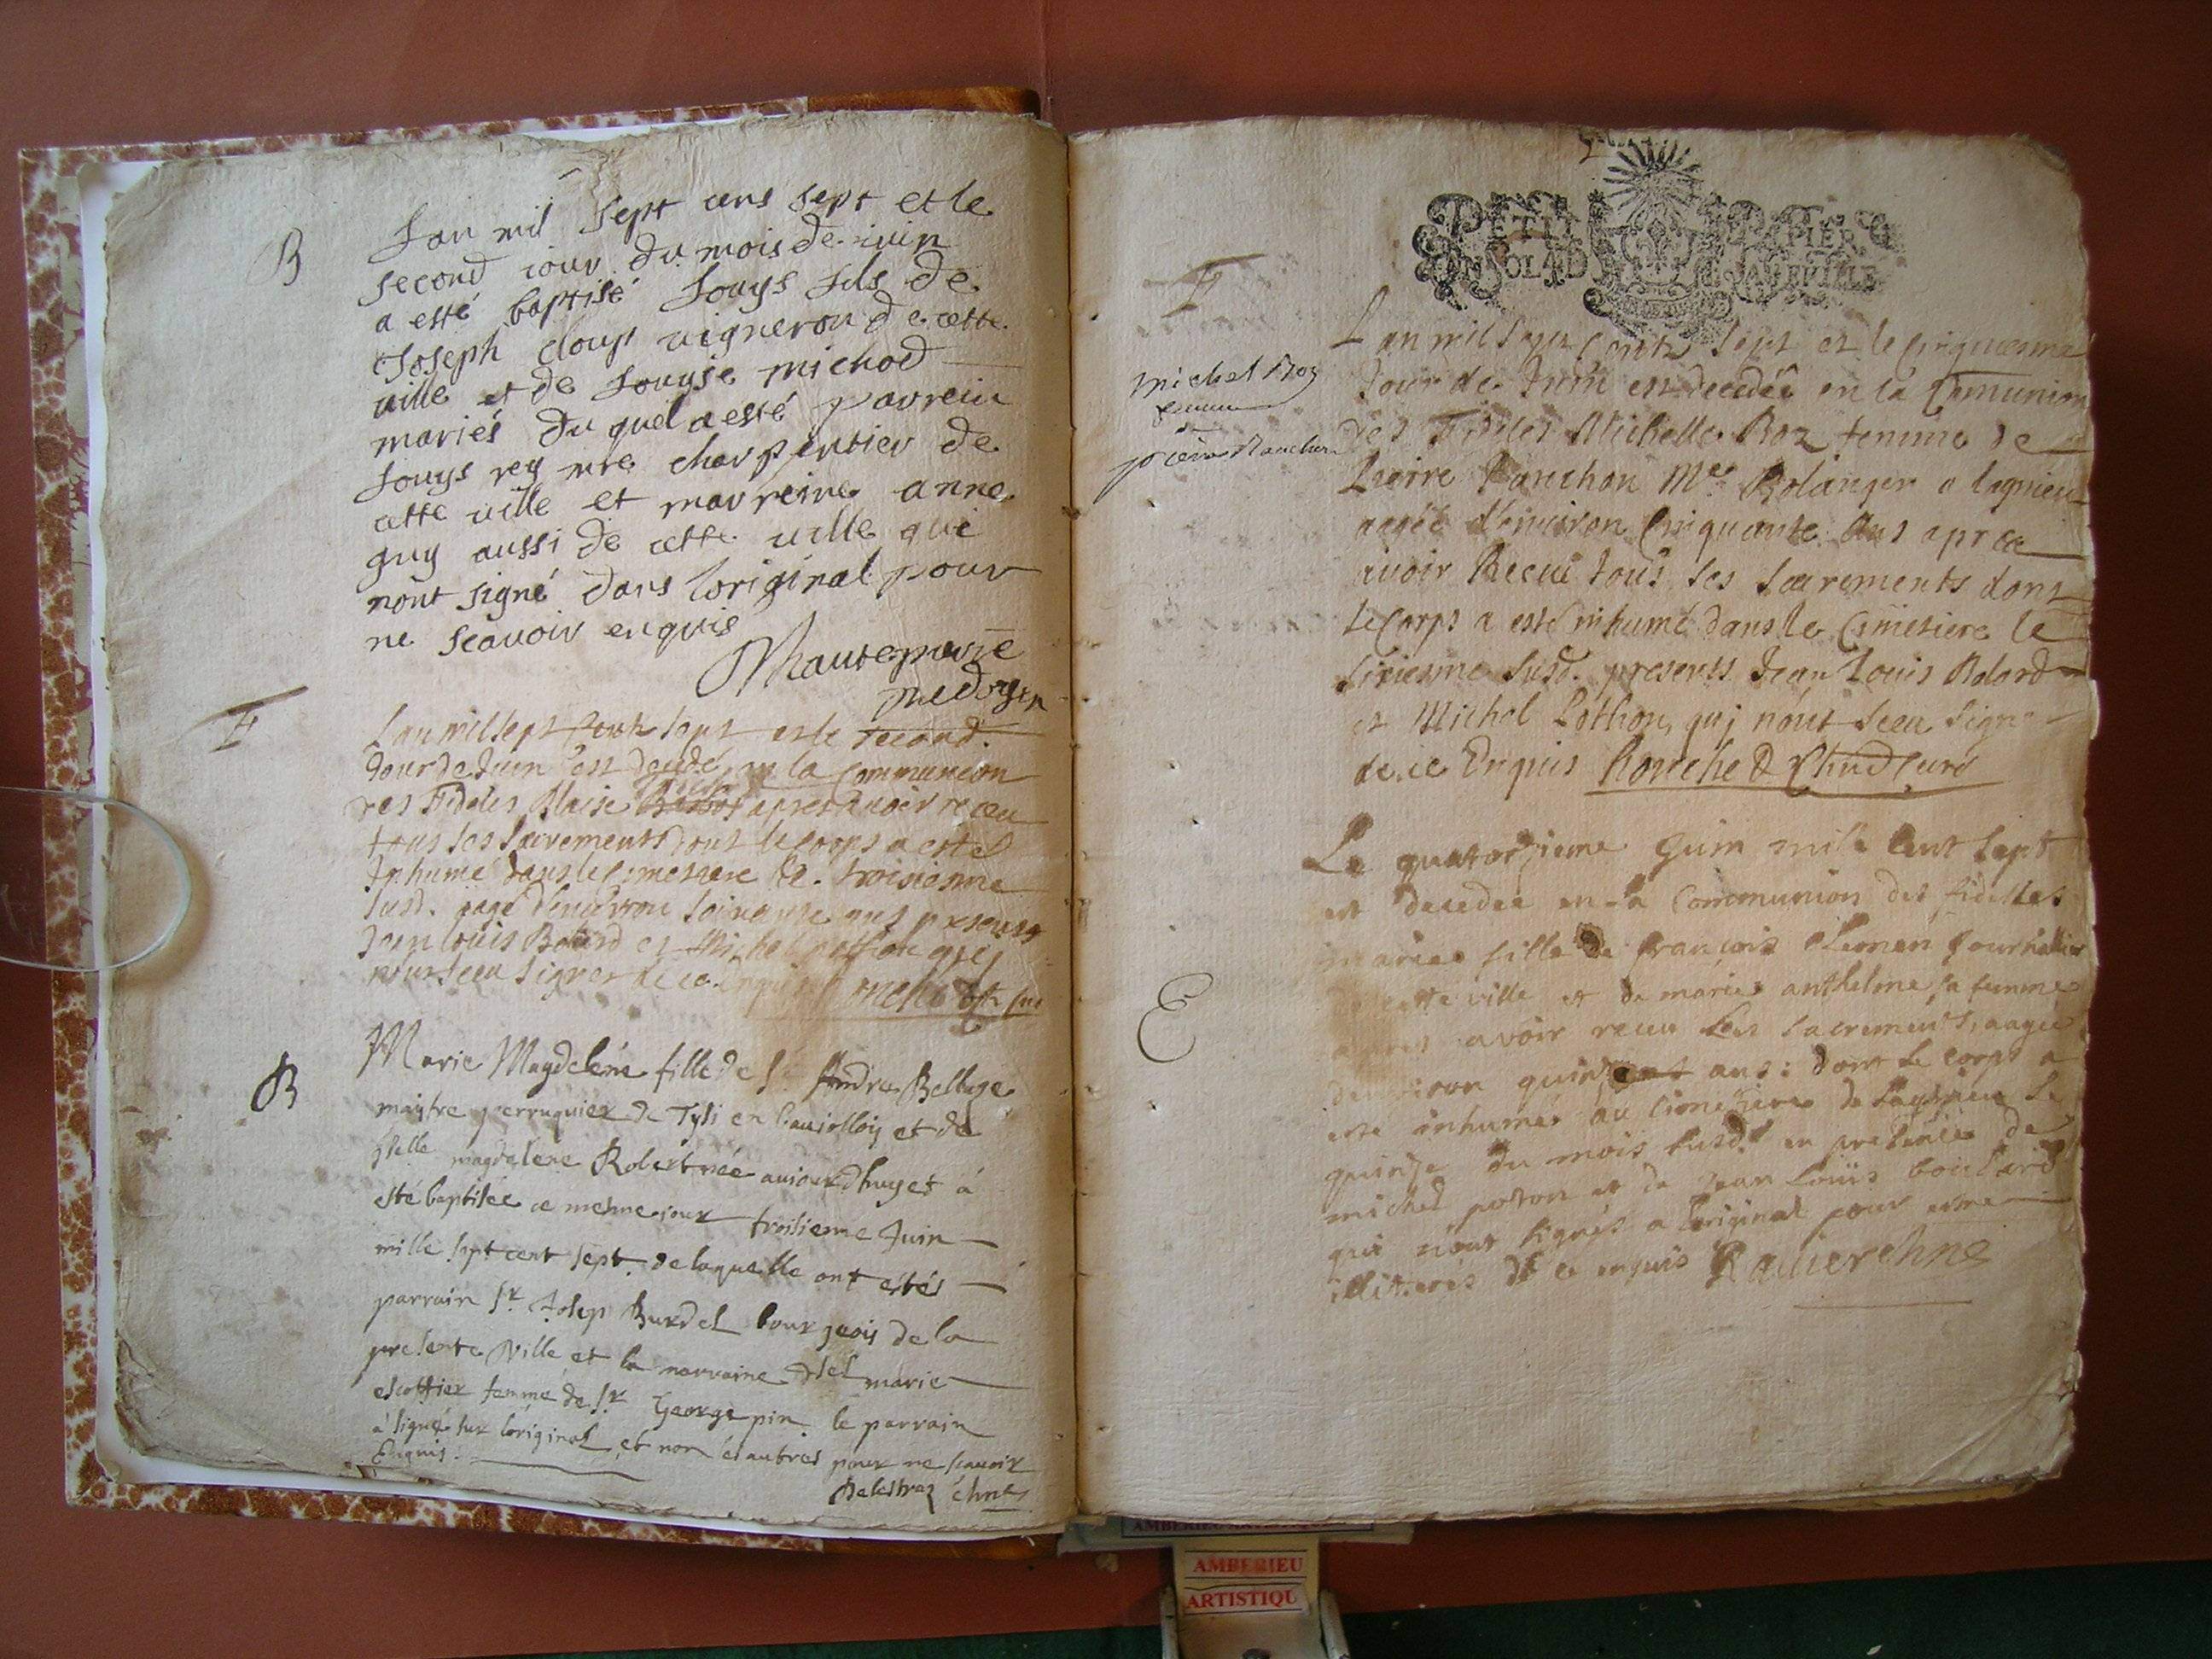 B
Lan mil sept cens sept et le
second iour du mois de iuin
a esté baptisé Louys fils de
Joseph clouys vigneron de cette
ville et de Louyse michod
mariés du quel a esté parrein
Louys rey mre charpentier de
cette ville et marreine anne
guy aussi de cette ville qui
nont signé dans loriginal pour
ne scavoir enquis
L an mil sept Cents sept et le second
Jour de Juin est decedé en la Communion
des Fideles Blaise apres avoir receu
tous ses sacrements dont le corps a esté
Inhumé dans le cimetiere le troisiesme
susd. aagé denviron soixante ans presents
Jean louis Bolard et Michel pothon qui
nont sceu signer de ce enquis
B
Marie Magdelene fille de Sr Andre Belluge
maytre perruquier de en et de
magdelene Robert née aujourdhuy et à
esté baptisée ce mesme jour troisieme Juin
mille sept cent sept de laquelle ont estés
parrain Sr Josep Burdel bourgeois de la
presente Ville et la marraine marie
escoffier femme de Sr George pin le parrain
à signé sur loriginal et non autres pour ne scavoir
Enquis.
PETIT PAPIER
UN SOL 4 D LA FEUILLE
michel Roz
femme
de
pierre Planchon
L an mil sept Cents sept et le cinquiesme
Jour de Juin est decedée en la Communion
des Fideles Michelle Roz femme de
Pierre Planchon Me Bolanger a lagnieu
aagée d'environ Cinquante Ans apres
avoir Receu tous ses sacrements dont
le Corps a esté inhumé dans le Cimetiere le
sixiesme susd. presents Jean Louis Bolard
et Michel Pothon qui nont sceu signer
de ce Enquis
Le quatorzieme Juin mile cent sept
est decedée en la Communion des fidelles
mariee fille de francois Clemen
de cette ville et de mariee anthelme sa femme
apres avoir receu les sacrements, aagee
denviron quinze ans: dont le corps a
este inhumé au cimetiere de Lagnieu le
quinze du mois susd. en presence de
michel poton et de Jean Louis boulard
qui n'ont signés a loriginal pour estre
illiterés de ce enquis
AMBERIEU
ARTISTIQU